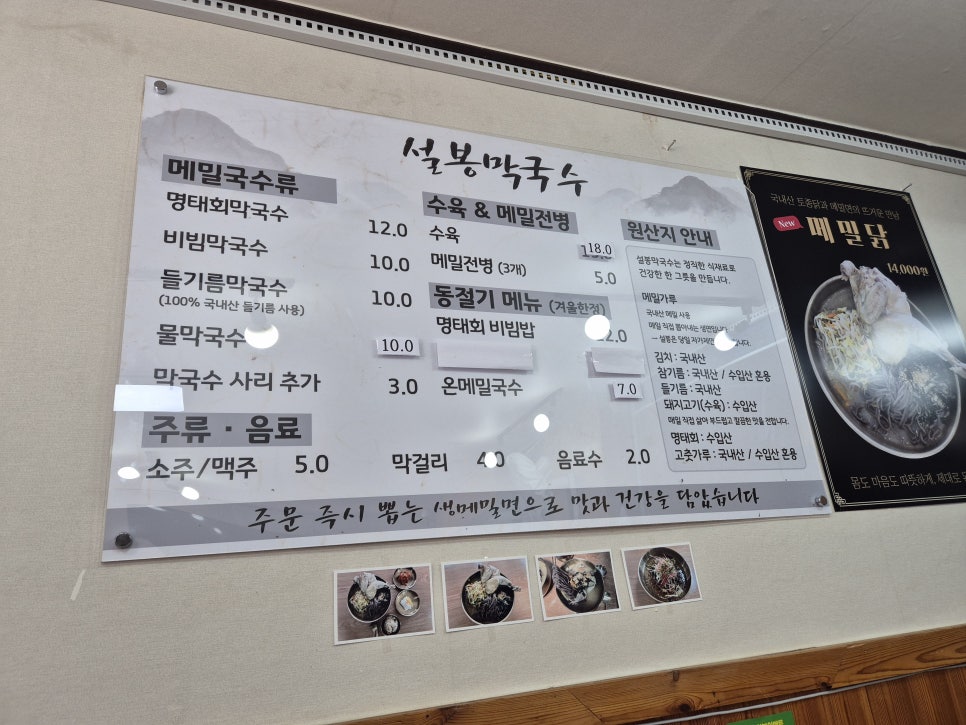 설봉막국수
메밀국수류
명태회막국수 12.0
비빔막국수 10.0
들기름막국수 10.0
(100% 국내산 들기름 사용)
물막국수 10.0
막국수 사리 추가 3.0
수육 & 메밀전병
수육 18.0
메밀전병 (3개) 5.0
동절기 메뉴 (겨울한정)
명태회 비빔밥
온메밀국수 7.0
주류 · 음료
소주/맥주 5.0
막걸리
음료수 2.0
원산지 안내
설봉막국수는 정직한 식재료로
건강한 한 그릇을 만듭니다.
메밀가루
국내산 메밀 사용
메밀 직접 뽑아내는 생면입니다
김치 : 국내산
참기름 : 국내산 / 수입산 혼용
들기름 : 국내산
돼지고기(수육) : 수입산
매일 직접 삶아 부드럽고 깔끔한 맛을 전합니다.
명태회 : 수입산
고춧가루 : 국내산 / 수입산 혼용
주문 즉시 뽑는 생메밀면으로 맛과 건강을 담았습니다
국내산 토종닭과 메밀면의 뜨거운 만남
New 메밀닭
14,000원
몸도 마음도 따뜻하게, 제대로